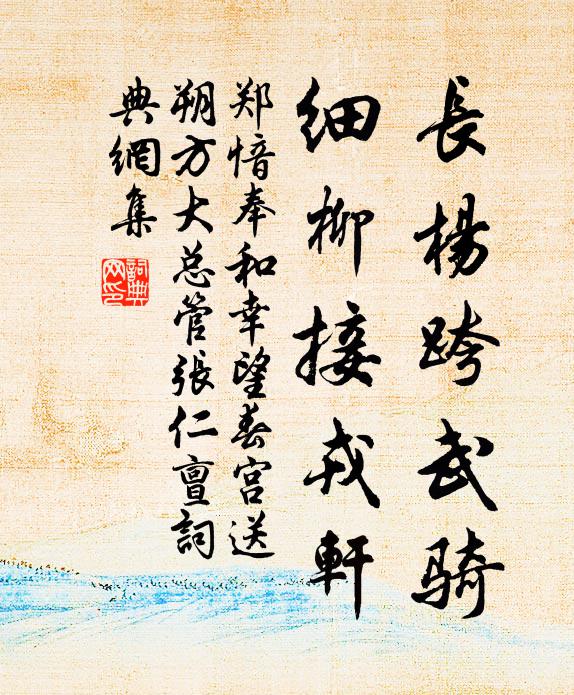 長楊跨武騎
細柳接戎軒
郑愔奉和幸望春宫送
朔方大总管張仁亶詞
典網集
詞典
网印